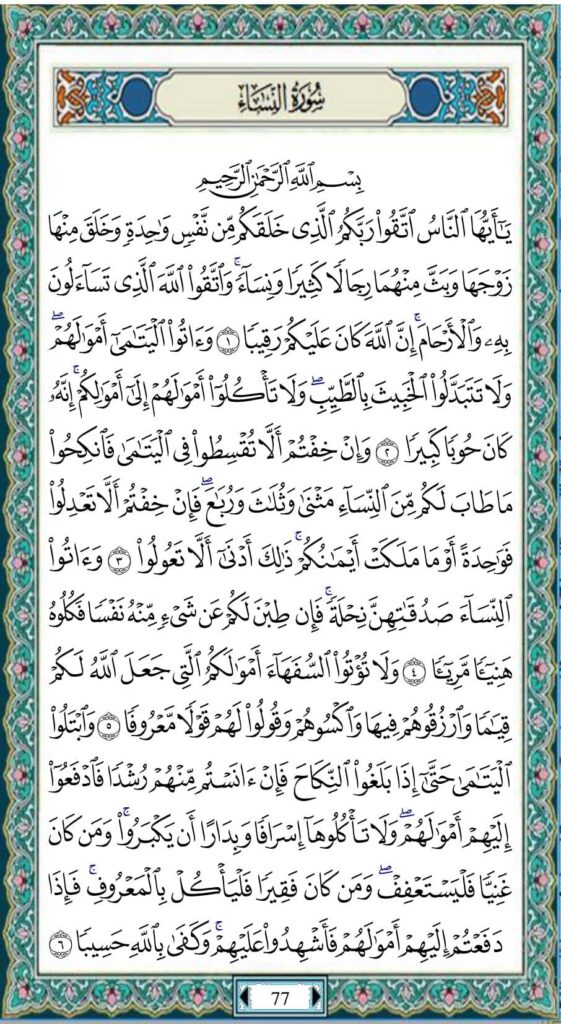 سُورَةُ النِّسَاءِ
بِسْمِ ٱللَّهِ ٱلرَّحْمَٰنِ ٱلرَّحِيمِ
يَٰٓأَيُّهَا ٱلنَّاسُ ٱتَّقُوا۟ رَبَّكُمُ ٱلَّذِى خَلَقَكُم مِّن نَّفْسٍ وَٰحِدَةٍ وَخَلَقَ مِنْهَا
زَوْجَهَا وَبَثَّ مِنْهُمَا رِجَالًا كَثِيرًا وَنِسَآءً ۚ وَٱتَّقُوا۟ ٱللَّهَ ٱلَّذِى تَسَآءَلُونَ
بِهِۦ وَٱلْأَرْحَامَ ۚ إِنَّ ٱللَّهَ كَانَ عَلَيْكُمْ رَقِيبًا ١ وَءَاتُوا۟ ٱلْيَتَٰمَىٰٓ أَمْوَٰلَهُمْ ۖ
وَلَا تَتَبَدَّلُوا۟ ٱلْخَبِيثَ بِٱلطَّيِّبِ ۖ وَلَا تَأْكُلُوٓا۟ أَمْوَٰلَهُمْ إِلَىٰٓ أَمْوَٰلِكُمْ ۚ إِنَّهُۥ
كَانَ حُوبًا كَبِيرًا ٢ وَإِنْ خِفْتُمْ أَلَّا تُقْسِطُوا۟ فِى ٱلْيَتَٰمَىٰ فَٱنكِحُوا۟
مَا طَابَ لَكُم مِّنَ ٱلنِّسَآءِ مَثْنَىٰ وَثُلَٰثَ وَرُبَٰعَ ۖ فَإِنْ خِفْتُمْ أَلَّا تَعْدِلُوا۟
فَوَٰحِدَةً أَوْ مَا مَلَكَتْ أَيْمَٰنُكُمْ ۚ ذَٰلِكَ أَدْنَىٰٓ أَلَّا تَعُولُوا۟ ٣ وَءَاتُوا۟
ٱلنِّسَآءَ صَدُقَٰتِهِنَّ نِحْلَةً ۚ فَإِن طِبْنَ لَكُمْ عَن شَىْءٍ مِّنْهُ نَفْسًا فَكُلُوهُ
هَنِيٓـًٔا مَّرِيٓـًٔا ٤ وَلَا تُؤْتُوا۟ ٱلسُّفَهَآءَ أَمْوَٰلَكُمُ ٱلَّتِى جَعَلَ ٱللَّهُ لَكُمْ
قِيَٰمًا وَٱرْزُقُوهُمْ فِيهَا وَٱكْسُوهُمْ وَقُولُوا۟ لَهُمْ قَوْلًا مَّعْرُوفًا ٥ وَٱبْتَلُوا۟
ٱلْيَتَٰمَىٰ حَتَّىٰٓ إِذَا بَلَغُوا۟ ٱلنِّكَاحَ فَإِنْ ءَانَسْتُم مِّنْهُمْ رُشْدًا فَٱدْفَعُوٓا۟
إِلَيْهِمْ أَمْوَٰلَهُمْ ۖ وَلَا تَأْكُلُوهَآ إِسْرَافًا وَبِدَارًا أَن يَكْبَرُوا۟ ۚ وَمَن كَانَ
غَنِيًّا فَلْيَسْتَعْفِفْ ۖ وَمَن كَانَ فَقِيرًا فَلْيَأْكُلْ بِٱلْمَعْرُوفِ ۚ فَإِذَا
دَفَعْتُمْ إِلَيْهِمْ أَمْوَٰلَهُمْ فَأَشْهِدُوا۟ عَلَيْهِمْ ۚ وَكَفَىٰ بِٱللَّهِ حَسِيبًا ٦
77